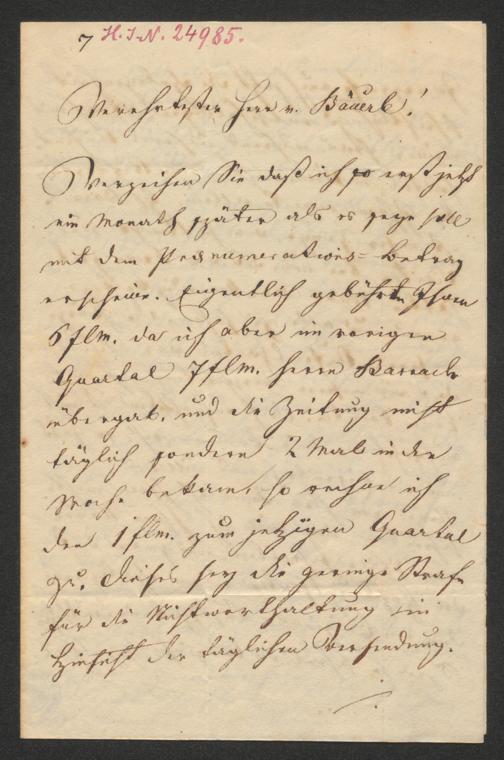 7 H.I.N. 24985.
Verehrtester Herr v. Bäuerle!
Verzeihen Sie daß ich so erst jetzt
ein Monath später als es seyn soll
mit dem Pränumerations- Betrag
erscheine. Eigentlich gebührten Ihnen
6 flm. da ich aber im vorigen
Quartal 7 flm. Herrn
übergab, und die Zeitung nicht
täglich sondern 2 Mal in der
Woche bekam, so rechne ich
den 1 flm. zum jetzigen Quartal
zu. Dieses sey die geringe Strafe
für die Nichtworthaltung in
Hinsicht der täglichen Versendung.